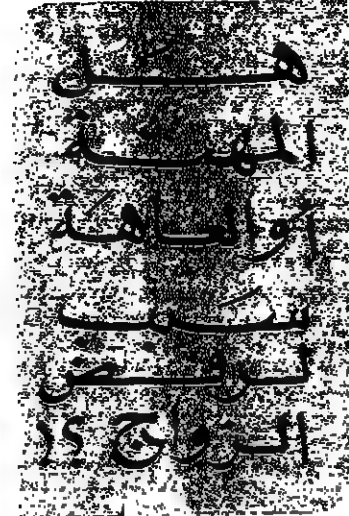 هل
المهنة
أو العاهة
سبب
لرفض
الزواج ؟!